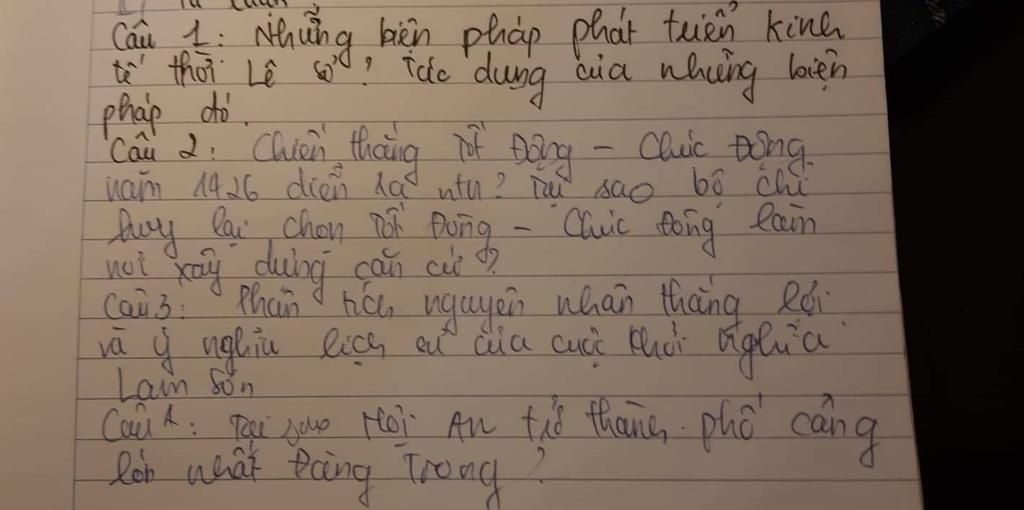 Câu 1: Những biện pháp phát triển kinh
tế thời Lê sơ? Tác dụng của những biện
pháp đó.
Câu 2: Chiến thắng Tốt Động - Chúc Động
năm 1426 diễn ra ntn? Tại sao bộ chỉ
huy lại chọn Tốt Động - Chúc Động làm
nơi xây dựng căn cứ?
Câu 3: Phân tích nguyên nhân thắng lợi
và ý nghĩa lịch sử của cuộc khởi nghĩa
Lam Sơn
Câu 4: Tại sao Hội An trở thành phố cảng
lớn nhất Đàng Trong?